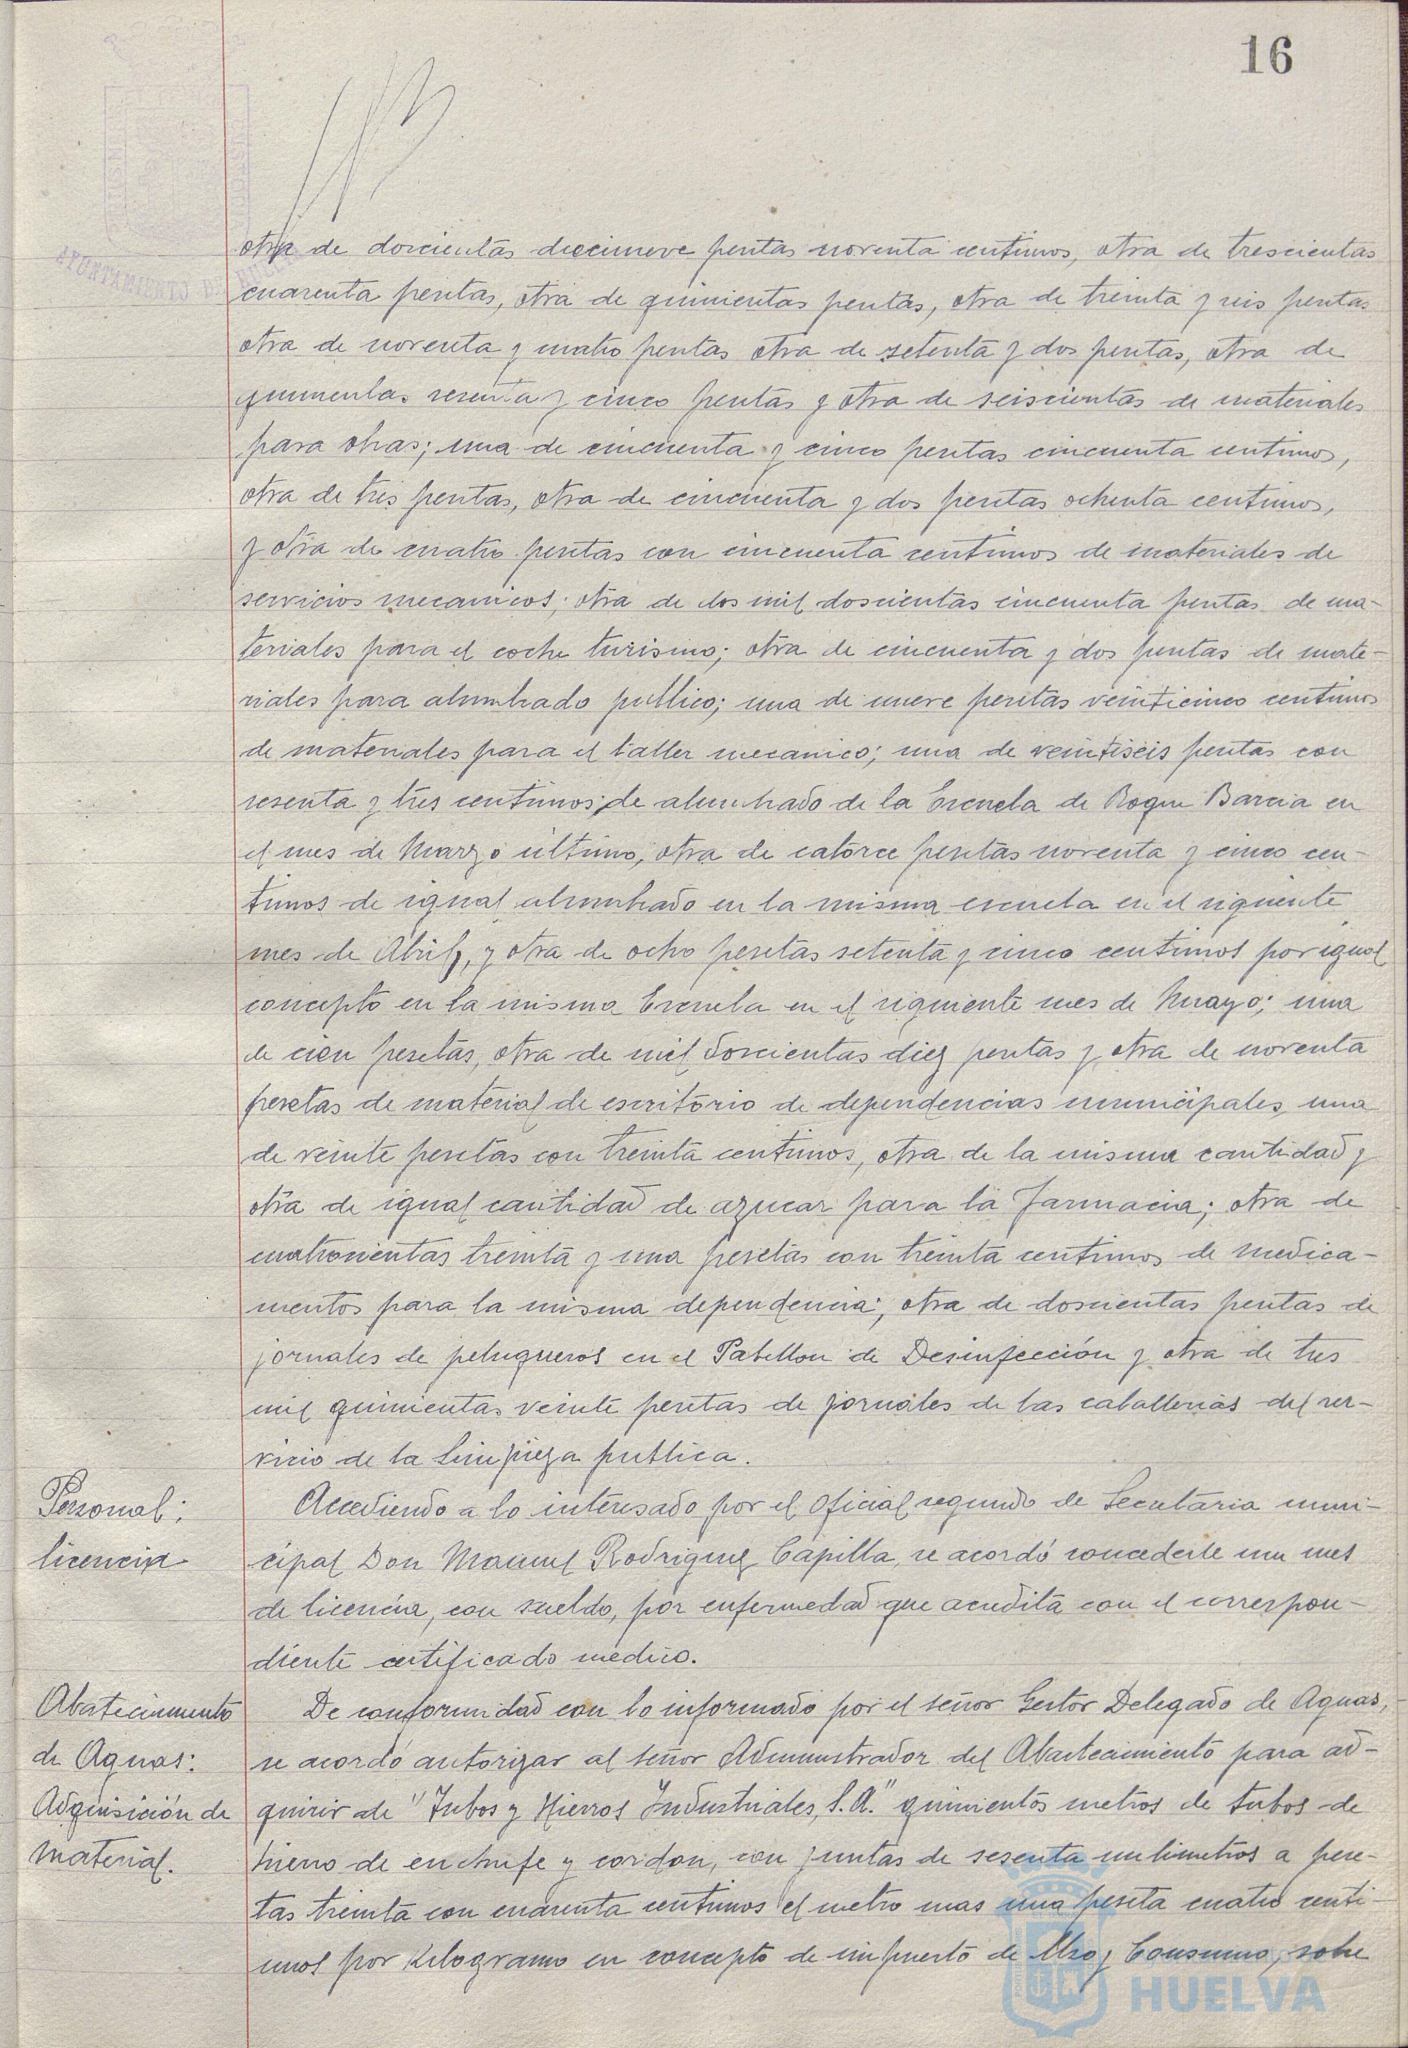 16
AYUNTAMIENTO DE HUELVA
otra de doscientas diecinueve pesetas noventa centimos, otra de trescientas
cuarenta pesetas, otra de quinientas pesetas, otra de treinta y seis pesetas
otra de noventa y cuatro pesetas otra de setenta y dos pesetas, otra de
quinientas sesenta y cinco pesetas y otra de seiscientas de materiales
para obras; una de cincuenta y cinco pesetas cincuenta centimos,
otra de tres pesetas, otra de cincuenta y dos pesetas ochenta centimos,
y otra de cuatro pesetas con cincuenta centimos de materiales de
servicios mecanicos; otra de dos mil doscientas cincuenta pesetas de ma-
teriales para el coche turismo; otra de cincuenta y dos pesetas de mate-
riales para alumbrado publico; una de nueve pesetas veinticinco centimos
de materiales para el taller mecanico; una de veintiseis pesetas con
sesenta y tres centimos de alumbrado de la Escuela de Roque Barcia en
el mes de Marzo último, otra de catorce pesetas noventa y cinco cen-
timos de igual alumbrado en la misma escuela en el siguiente
mes de Abril, y otra de ocho pesetas setenta y cinco centimos por igual
concepto en la misma Escuela en el siguiente mes de Mayo; una
de cien pesetas, otra de mil doscientas diez pesetas y otra de noventa
pesetas de material de escritorio de dependencias municipales, una
de veinte pesetas con treinta centimos, otra de la misma cantidad y
otra de igual cantidad de azucar para la Farmacia; otra de
cuatrocientas treinta y una pesetas con treinta centimos de medica-
mentos para la misma dependencia; otra de doscientas pesetas de
jornales de peluqueros en el Pabellon de Desinfección y otra de tres
mil quinientas veinte pesetas de jornales de las caballerias del ser-
vicio de la Limpieza publica.
Personal:
licencia
Accediendo a lo interesado por el oficial segundo de Secretaria muni-
cipal Don Manuel Rodriguez Capilla, se acordó concederle un mes
de licencia, con sueldo, por enfermedad que acredita con el correspon-
diente certificado medico.
Abastecimiento
de Aguas:
Adquisición de
material.
De conformidad con lo informado por el señor Gestor Delegado de Aguas,
se acordó autorizar al señor Administrador del Abastecimiento para ad-
quirir de "Tubos y Hierros Industriales, S.A." quinientos metros de tubos de
hierro de enchufe y cordon, con juntas de sesenta milimetros a pese-
tas treinta con cuarenta centimos el metro mas una peseta cuatro centi-
mos por Kilogramo en concepto de impuesto de Uso y Consumo, sobre
HUELVA